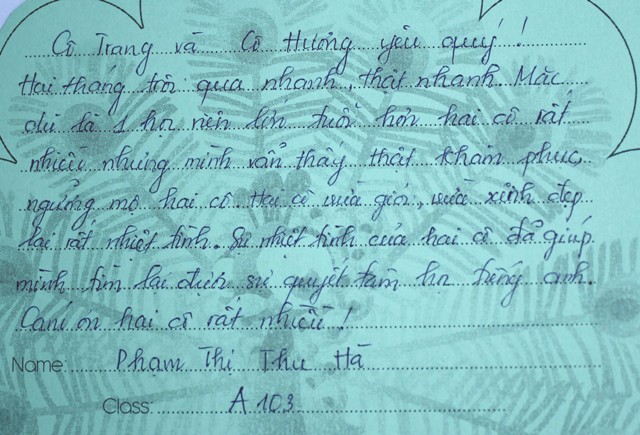 Cô Trang và Cô Hương yêu quý!
Hai tháng trôi qua nhanh, thật nhanh. Mặc
dù là 1 học viên lớn tuổi hơn hai cô rất
nhiều nhưng mình vẫn thấy thật khâm phục,
ngưỡng mộ hai cô. Hai cô vừa giỏi, vừa xinh đẹp
lại rất nhiệt tình. Sự nhiệt tình của hai cô đã giúp
mình tìm lại được sự quyết tâm học tiếng anh.
Cảm ơn hai cô rất nhiều!
Name: Phạm Thị Thu Hà
Class: A 103